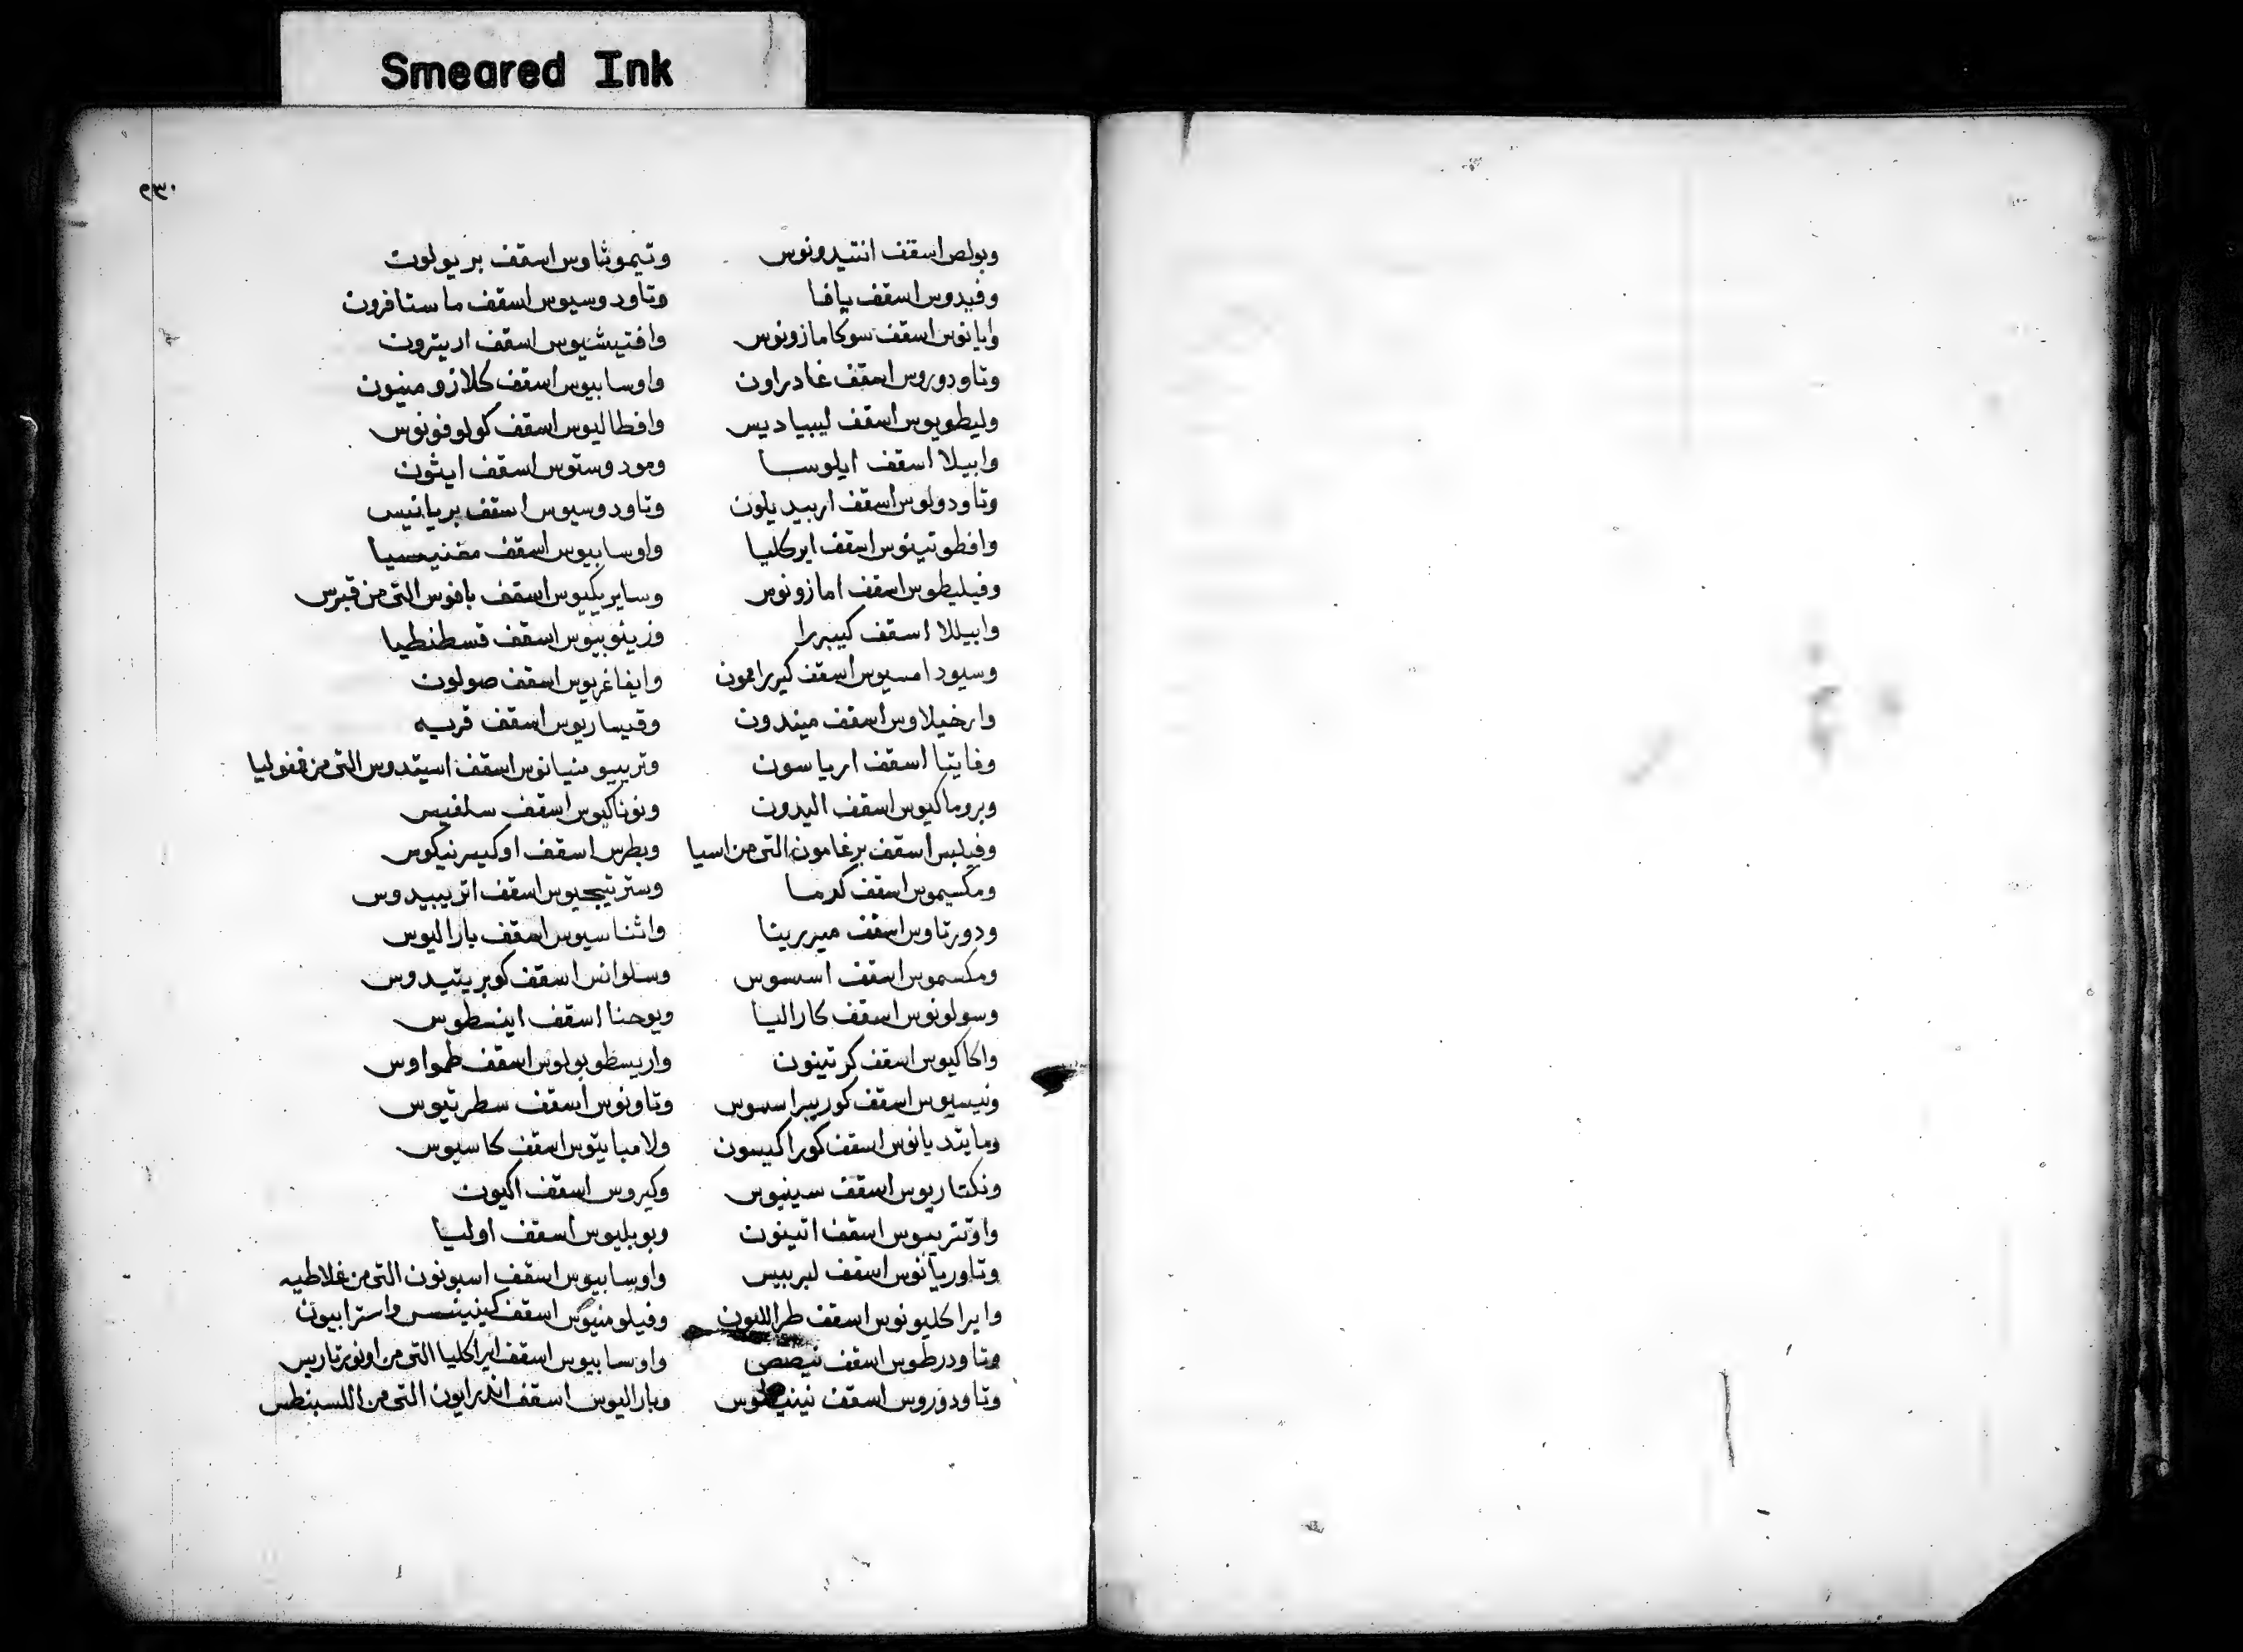 Smeared Ink
٢٣٠
وبولص اسقف انتيدونوس
وفيدوس اسقف يافا
وايانوس اسقف سوكامازونوس
وتاودوروس اسقف غادراون
وليطويوس اسقف ليبياديس
وابيلا اسقف ايلوسا
وتاودولوس اسقف اربيديلون
وافطوتينوس اسقف ايركليا
وفيليطوس اسقف امازونوس
وابيللا اسقف كيببرا
وسيودامسيوس اسقف كيربرامون
وارخيلاوس اسقف ميندون
وفايتا اسقف ارباسون
وبروماكيوس اسقف اليدون
وفيلبس اسقف برغامون التى من اسيا
ومكسيموس اسقف كدما
ودورتاوس اسقف ميربرينا
ومكسموس اسقف اسسوس
وسولونوس اسقف كاراليا
واكاكيوس اسقف كرتينون
ونيسيوس اسقف كوريبراسسوس
ومايتديانوس اسقف كوراكيسون
ونكتاريوس اسقف سينيوس
واوتتربيوس اسقف اتينون
وتاوريانوس اسقف لبربيس
وايراكليونوس اسقف طراللبون
وتاودرطوس اسقف نيصص
وتاودوروس اسقف
وتيموثاوس اسقف بريولوت
وتاودوسيوس اسقف ماستافرون
وافتيشيوس اسقف ادبترون
واوسابيوس اسقف كلازومنيون
وافطاليوس اسقف كولوفونوس
ومودوستوس اسقف اينون
وتاودوسيوس اسقف بريانيس
واوسابيوس اسقف مغنيسيا
وسايريكيوس اسقف بافوس التى من قبرس
وزينوبيوس اسقف قسطنطيا
وايفاغريوس اسقف صولون
وقيساريوس اسقف قريه
وتربيومنيانوس اسقف اسيتدوس التى من ففوليا
ونوناكيوس اسقف سلفيس
وبطرس اسقف اوكيسرنيكوس
وسترتيجيوس اسقف اتريبيدوس
واثناسيوس اسقف باراليوس
وسلوانس اسقف كوبريتيدوس
ويوحنا اسقف اينسطوس
واريسطوبولوس اسقف طمواوس
وتاونوس اسقف سطرتيوس
ولامبايتوس اسقف كاسيوس
وكيروس اسقف اكيون
وبوبليوس اسقف اوليا
واوسابيوس اسقف اسبونون التى من غلاطيه
وفيلومنيوس اسقف واسترابيون
واوسابيوس اسقف ايراكليا التى من اونورتاريس
وباراليوس اسقف اندرابون التى من اللسبنطس